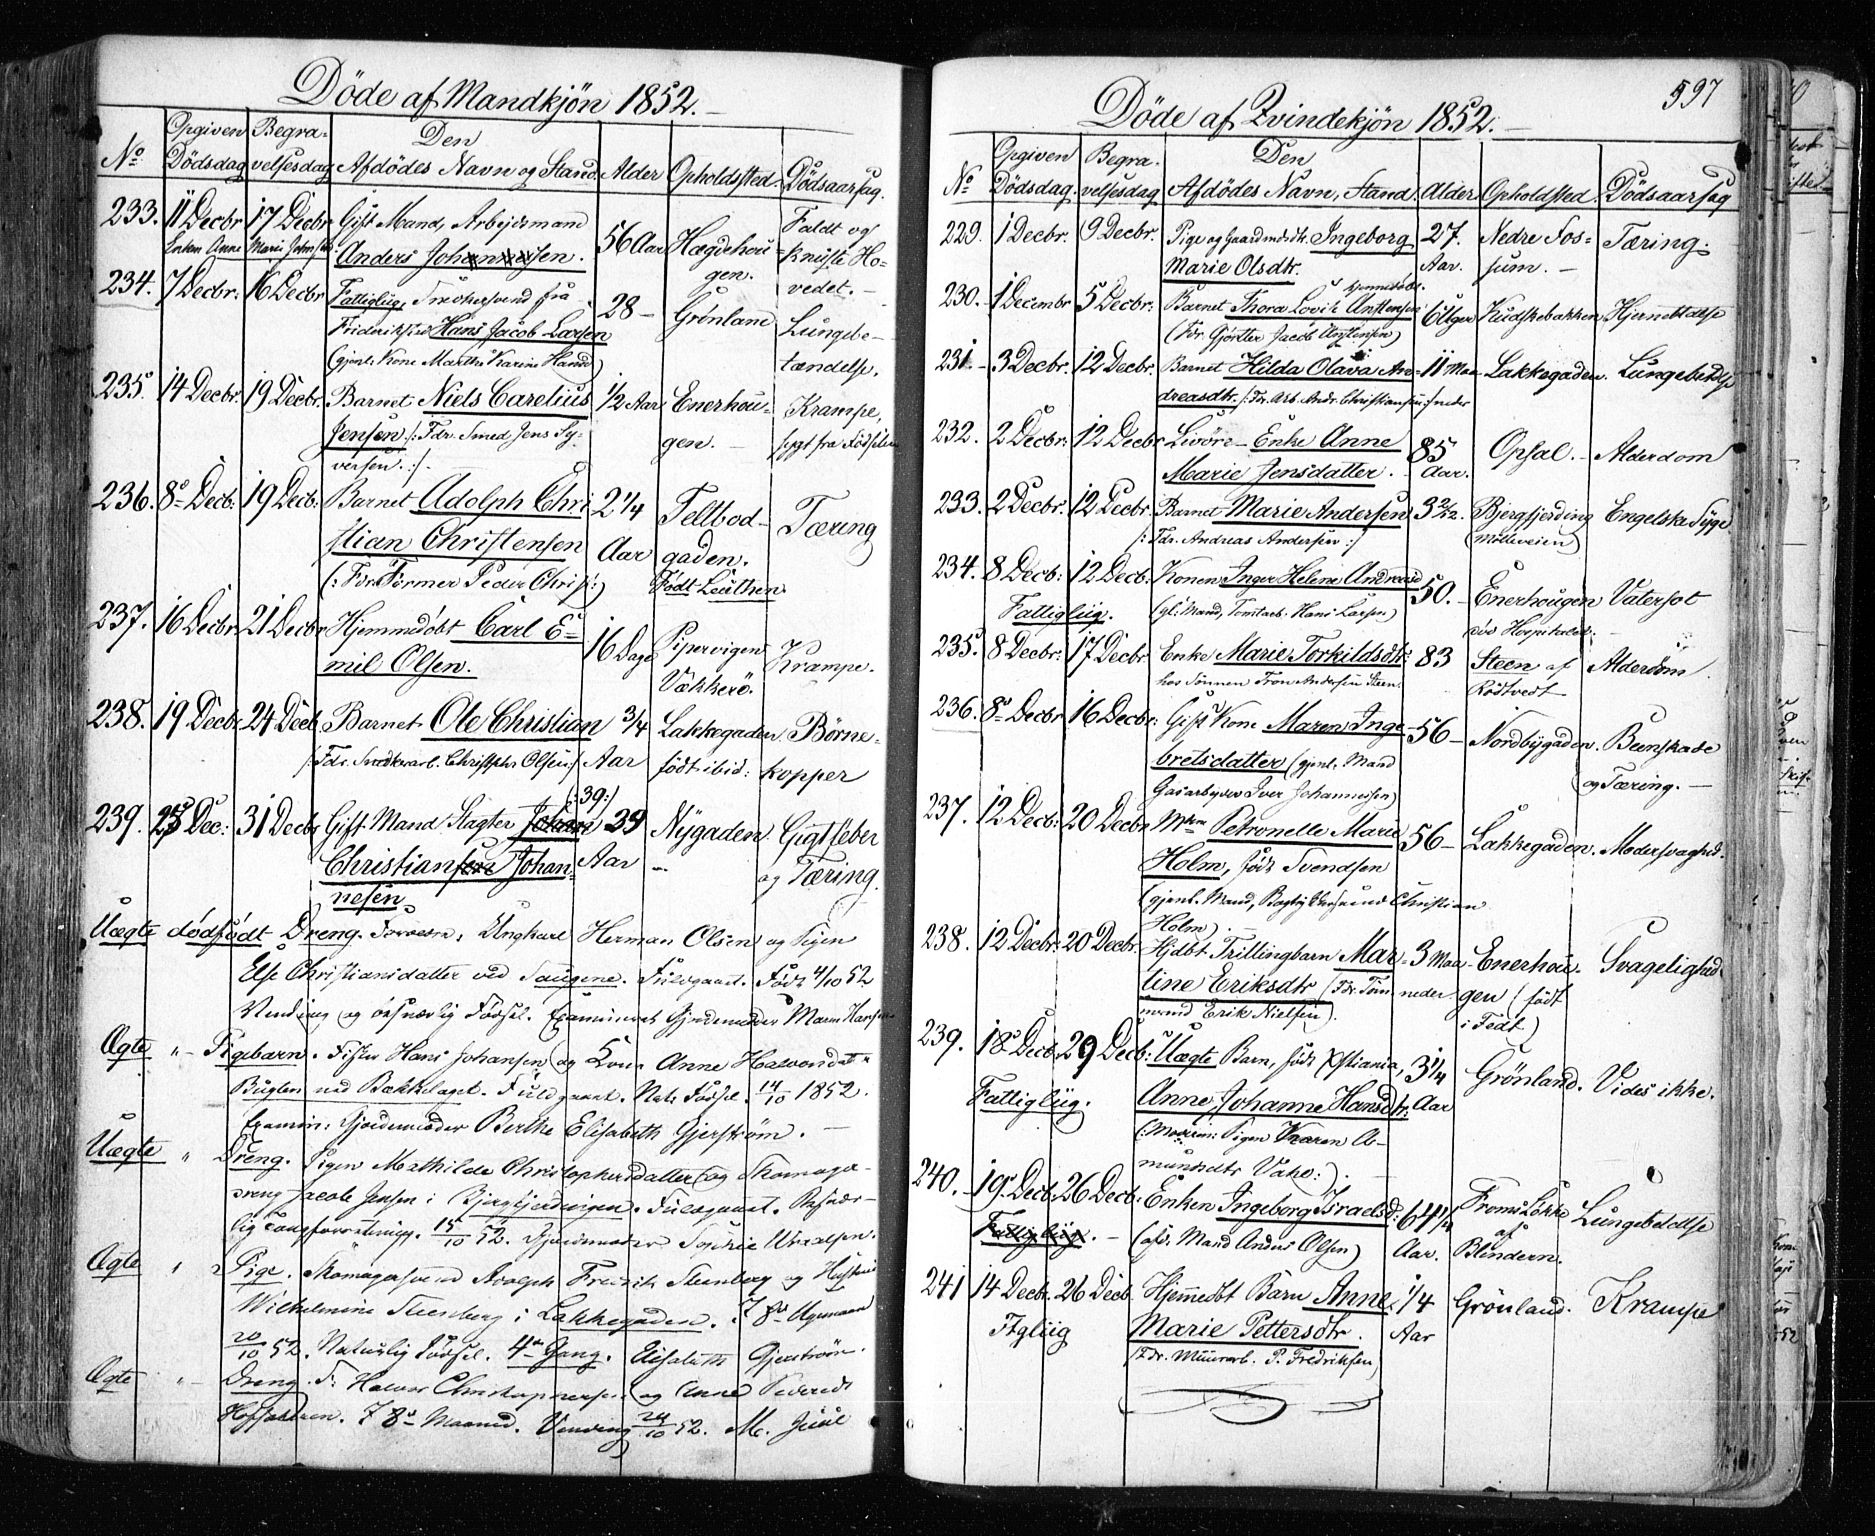 Döde af Mandkjön 1852.
No
Opgiven Dödsdag
Begravelsesdag
Den Afdödes Navn og Stand
Alder
Opholdsted
Dödsaarsag.
233. 11 Decbr 17 Decbr Gift Mand, Arbejdsmand 56 Aar Hægdehou- Faldt og
Enken Anne Marie Johnsd. Anders Johannesen. gen. knuste Ho-
vedet.
234. 7 Decbr. 16 Decbr Fattiglig, Snedkersvend fra 28 Grönland Lungebe-
Frideriksstad Hans Jacob Larsen tændelse.
(gjenl. Kone Marthe Karine Hansd)
235. 14 Decbr. 19 Decbr. Barnet Niels Carelius 1/2 Aar Enerhou- Krampe,
Jensen /: Fdr. Smed Jens Sy- gen. sygt fra Födselen
versen. :/
236. 8de Decb: 19 Decb: Barnet Adolph Chri 2 1/4 Feltbod- Tæring
stian Christensen Aar gaden.
(: Fdr. Former Peder Christ:) Födt Leuthen
237. 16 Decbr. 21 Decbr Hjemmedöbt Carl E- 16 Dage Pipervigen Krampe.
mil Olsen. Vækkerö.
238. 19 Decbr. 24 Decb. Barnet Ole Christian 3/4 Lakkegaden Börne-
/: Fdr. Snedkerarb. Christopher Olsen :/ Aar födt ibid: kopper
(:39:)
239. 23 Dec: 31 Decbr Gift Mand Slagter Johan 39 Nÿgaden Gigtfeber
Christian Johan- Aar og Tæring.
nesen
Uægte dödfödt Dreng. Forældre, Ungkarl Herman Olsen og Pigen
Else Christiansdatter ved Saugene. Fuldgaaet. Födt 4/10 52
Vending og besværlig Födsel. Examineret Gjordemoder Maren Hansen
Ægte " Pigebarn. Fister Hans Johansen og Kone Anne Halvorsdat
Buglen ved Bækkelaget. Fuldgaaet. Nat. Födsel. 14/10 1852.
Examin: Gjordemoder Berthe Elisabeth Gjerström.
Uægte " Dreng. Pigen Mathilde Christophersdatter og Skomager-
dreng Jacob Jensen i Bjergfjerdingen. Fuldgaaet. Besvær-
lig 15/10 52. Gjordemoder Sophie
Ægte " Pige. Skomagersvend Adolph Fredrik Steenberg og Hustru
Wilhelmine Steenberg i Lakkegaden. 7 8de Ugemaan
20/10 52. Naturlig Födsel. 4de Gang. Elisabeth Gjerström.
Ægte " Dreng. F: Halvor Christophersen og Anne Pedersd:
7 8de Maaned. Vending 24/10 52. M. Juul
597
Döde af Qvindekjön 1852.
No
Opgiven Dödsdag.
Begravelsesdag
Den Afdödes Navn, Stand
Alder
Opholdsted
Dödsaarsag
229. 1 Decbr. 9 Decbr. Pige og Gaardmdsdtr. Ingeborg 27. Nedre Fos- Tæring.
Marie Olsdtr. Aar. sum.
hjemmedöbt
230. 1 Decembr 5 Decbr: Barnet Thora Lovise Anstensen 6 Uger Kudskebakken Hjernebetdlse
(Fdr. Gjörtler Jacob Anstensen)
231. 3 Decbr. 12 Decbr. Barnet Hilda Olava An- 11 Maa Lakkegaden. Lungebetdlse
dreasdtr. /: Fdr. Arb. Andr. Christiansen :/ neder
232. 2 Decbr: 12 Decbr Livöre-Enke Anne 85 Opsal. Alderdom
Marie Jensdatter. Aar.
233. 2 Decbr. 12 Decbr. Barnet Marie Andersen 3 2/12. Bjergfjerding Engelsk Syge
/: Fdr. Andreas Andersen :/ (Mölleveien)
234. 8 Decb: 12 Decb. Konen Inger Helene Andreasd 50. Enerhougen Vatersot
Fattiglig. (gl. Mand, Tomtarb. Hans Larsen) död Hospitalet.
235. 8 Decbr: 17 Decbr. Enke Marie Torkildsdtr. 83 Steen af Alderdom.
hos Sönnen Tron Andersen Steen. Rödtvedt
236. 8de Decbr 16 Decbr: Gift Kone Maren Inge- 56 Nordbygaden. Beenskade
bretsdatter (gjenl. Mand og Tæring.
Gaardarbeider Iver Johannesen)
237. 12 Decb: 20 Decbr. Mdm Petronelle Marie 56 Lakkegaden. Modersvaghed.
Holm, födt Svendsen
(gjenl. Mand, Christian
Holm).
238. 12 Decbr: 20 Decbr. Hjdbt Trillingbarn Mar- 3 Maa- Enerhou- Svagelighed
tine Eriksdtr (Fdr. Töm neder gen (födt
mermd Erik Nielsen). i Fedt)
239. 18de Decb. 29 Decb: Uægte Barn, födt Xstiania, 3 1/4 Grönland. Vides ikke.
Fattiglig. Anne Johanne Hansdtr. Aar
(: Moderen: Pigen Karen A-
mundsdtr Vahe :)
240. 19de Decb: 26 Decb. Enken Ingeborg Israelsd: 64 1/4 Fromsløkke Lungebetdlse
Fattiglig. (afd. Mand Anders Olsen) Aar. af Blindern.
241 14 Decbr. 26 Decb. Hjemmedbt Barn Anne 1/4 Grönland. Krampe
Ftglig Marie Pettersdtr. Aar
(Fdr. Muurarb. P. Fredriksen)